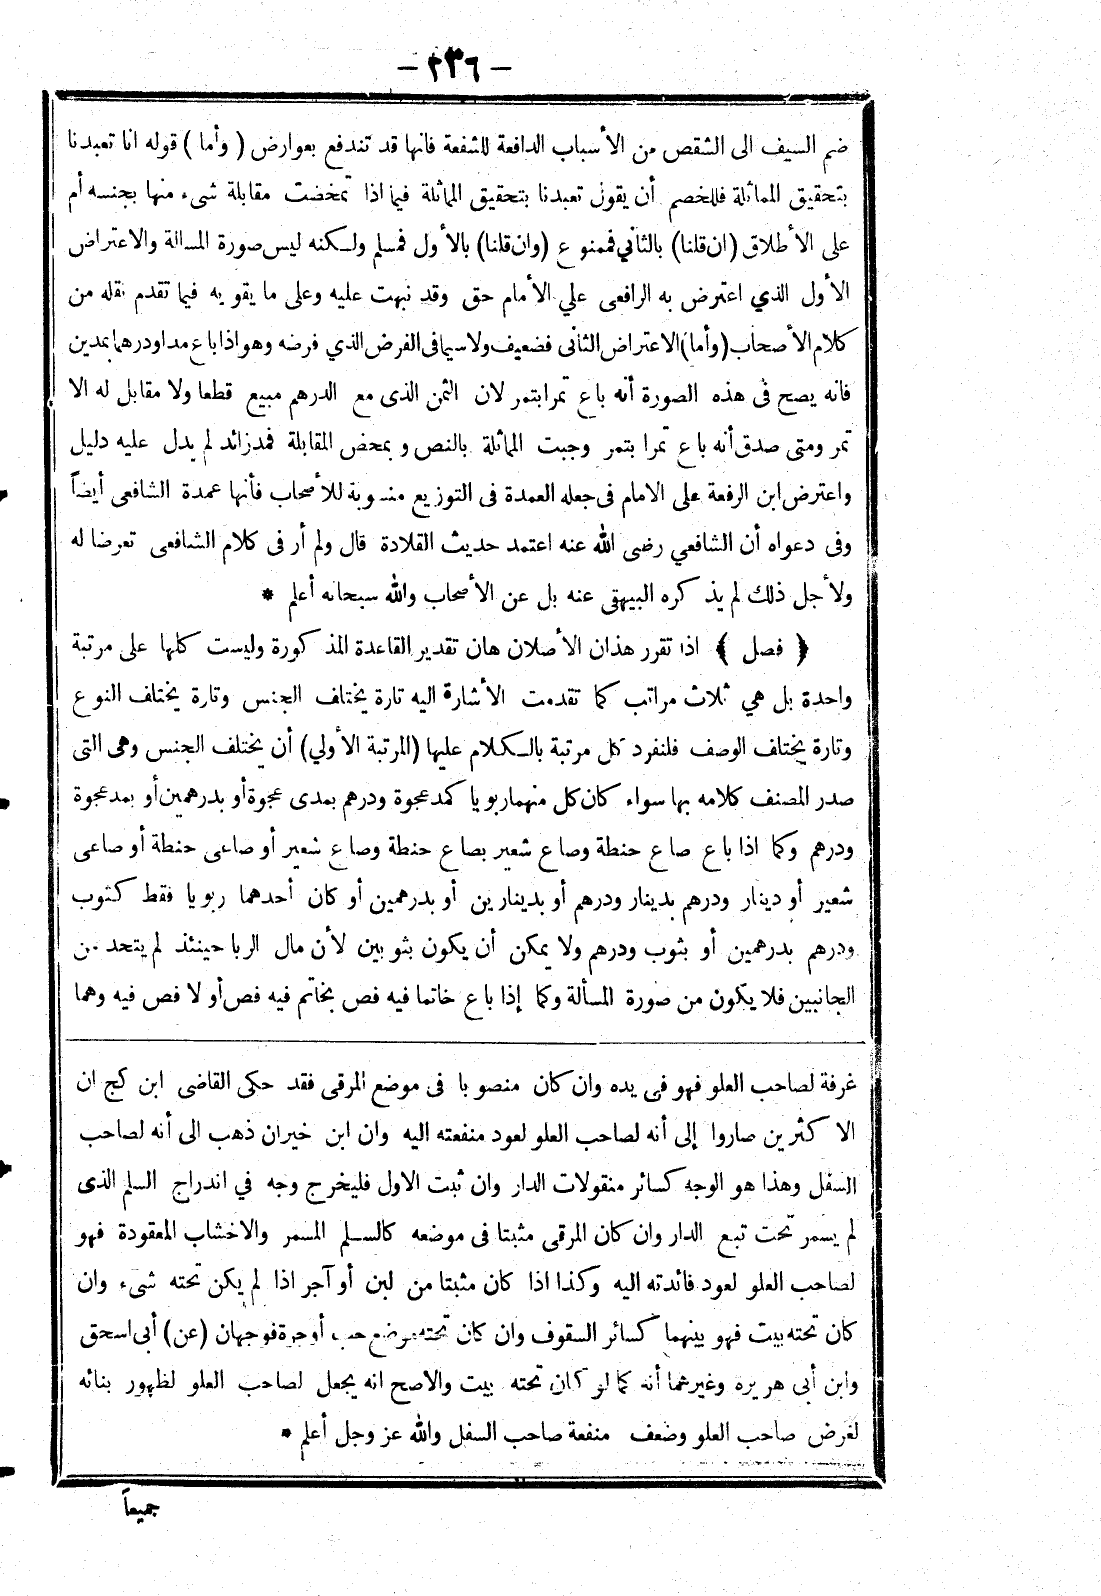 — ٣٣٦ —
ضم السيف الى الشقص من الأسباب الدافعة للشفعة فانها قد تندفع بعوارض (وأما) قوله انا تعبدنا
بتحقيق المماثلة فللخصم أن يقول تعبدنا بتحقيق المماثلة فيما اذا تمخضت مقابلة شىء منها بجنسه أم
على الأطلاق (ان قلنا) بالثاني فممنوع (وان قلنا) بالأول فمسلم ولكنه ليس صورة المسالة والاعتراض
الأول الذي اعترض به الرافعى علي الأمام حق وقد نبهت عليه وعلى ما يقويه فيما تقدم نقله من
كلام الأصحاب (وأما) الاعتراض الثانى فضعيف ولا سيما فى الفرض الذي فرضه وهو اذا باع مدا ودرهما بمدين
فانه يصح فى هذه الصورة أنه باع تمرا بتمر لان الثمن الذى مع الدرهم مبيع قطعا ولا مقابل له الا
تمر ومتى صدق أنه باع تمرا بتمر وجبت المماثلة بالنص وبمحض المقابلة فمد زائد لم يدل عليه دليل
واعترض ابن الرفعة على الامام فى جعله العمدة فى التوزيع منسوبة للأصحاب فأنها عمدة الشافعى أيضاً
وفى دعواه أن الشافعي رضى الله عنه اعتمد حديث القلادة قال ولم أر فى كلام الشافعى تعرضا له
ولأجل ذلك لم يذكره البيهقى عنه بل عن الأصحاب والله سبحانه أعلم *
﴿ فصل ﴾ اذا تقرر هذان الأصلان هان تقدير القاعدة المذكورة وليست كلها على مرتبة
واحدة بل هي ثلاث مراتب كما تقدمت الأشارة اليه تارة يختلف الجنس وتارة يختلف النوع
وتارة يختلف الوصف فلنفرد كل مرتبة بالكلام عليها (المرتبة الأولي) أن يختلف الجنس وهى التى
صدر المصنف كلامه بها سواء كان كل منهما ربويا كمد عجوة ودرهم بمدى عجوة أو بدرهمين أو بمد عجوة
ودرهم وكما اذا باع صاع حنطة وصاع شعير بصاع حنطة وصاع شعير أو صاعى حنطة أو صاعى
شعير أو دينار ودرهم بدينار ودرهم أو بدينارين أو بدرهمين أو كان أحدهما ربويا فقط كثوب
ودرهم بدرهمين أو بثوب ودرهم ولا يمكن أن يكون بثوبين لأن مال الربا حينئذ لم يتحد من
الجانبين فلا يكون من صورة المسألة وكما إذا باع خاتما فيه فص بخاتم فيه فص أو لا فص فيه وهما
غرفة لصاحب العلو فهو فى يده وان كان منصوبا فى موضع المرقى فقد حكى القاضى ابن كج ان
الاكثرين صاروا إلى أنه لصاحب العلو لعود منفعته اليه وان ابن خيران ذهب الى أنه لصاحب
السفل وهذا هو الوجه كسائر منقولات الدار وان ثبت الاول فليخرج وجه في اندراج السلم الذى
لم يسمر تحت تبع الدار وان كان المرقى مثبتا فى موضعه كالسلم المسمر والاخشاب المعقودة فهو
لصاحب العلو لعود فائدته اليه وكذا اذا كان مثبتا من لبن أو آجر اذا لم يكن تحته شىء وان
كان تحته بيت فهو بينهما كسائر السقوف وان كان تحته موضع حب أو جرة فوجهان (عن) أبى اسحق
وابن أبى هريرة وغيرهما أنه كما لو كان تحته بيت والاصح انه يجعل لصاحب العلو لظهور بنائه
لغرض صاحب العلو وضعف منفعة صاحب السفل والله عز وجل أعلم *
جميعاً